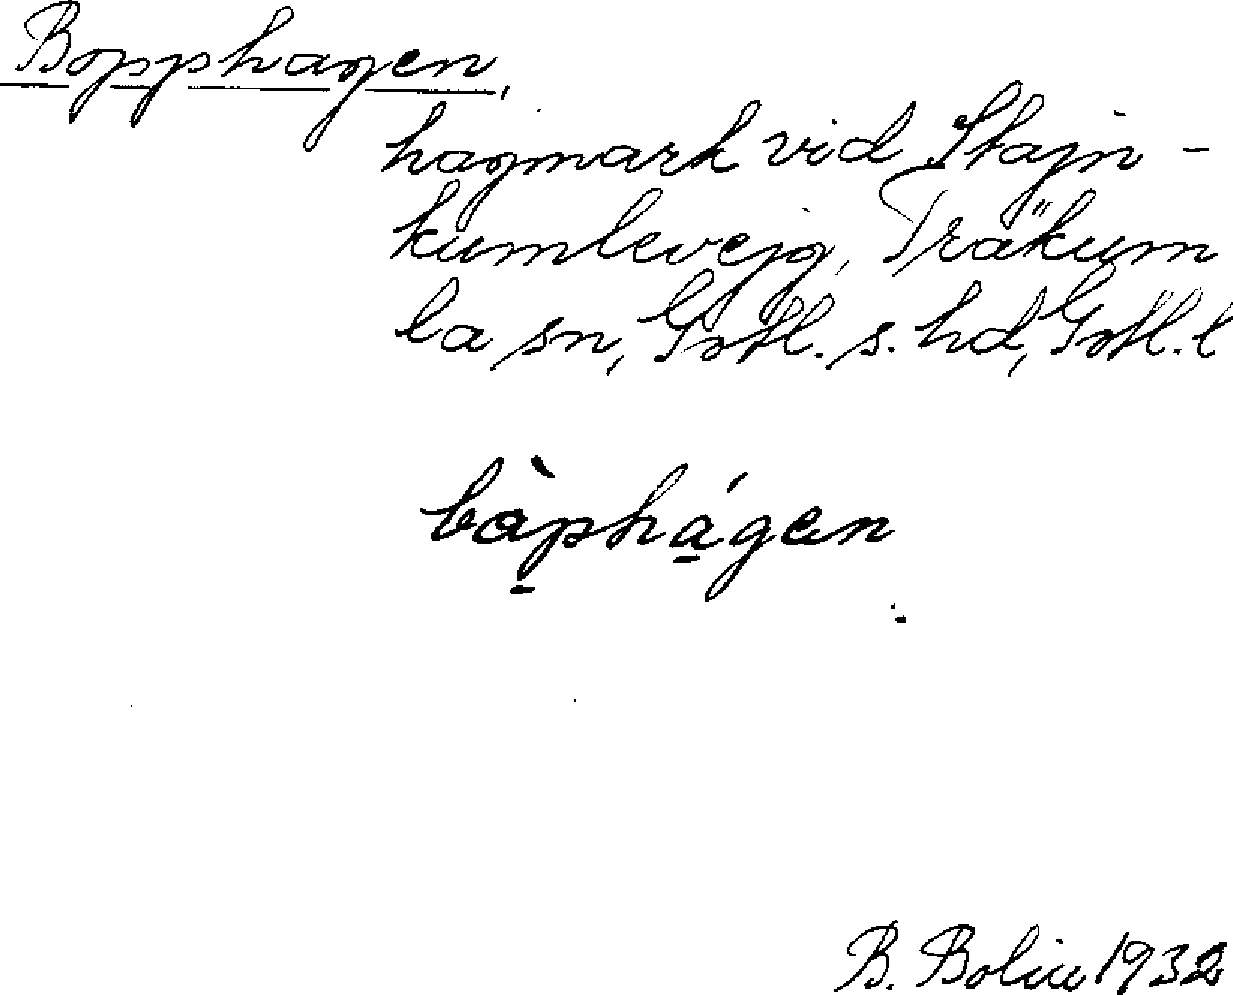 Bopphagen,
hagmark vid Stajn-
kumlevejg, Träkum
la sn, Gotl. s. hd, Gotl. l
bàphágen
B. Bolin 1932